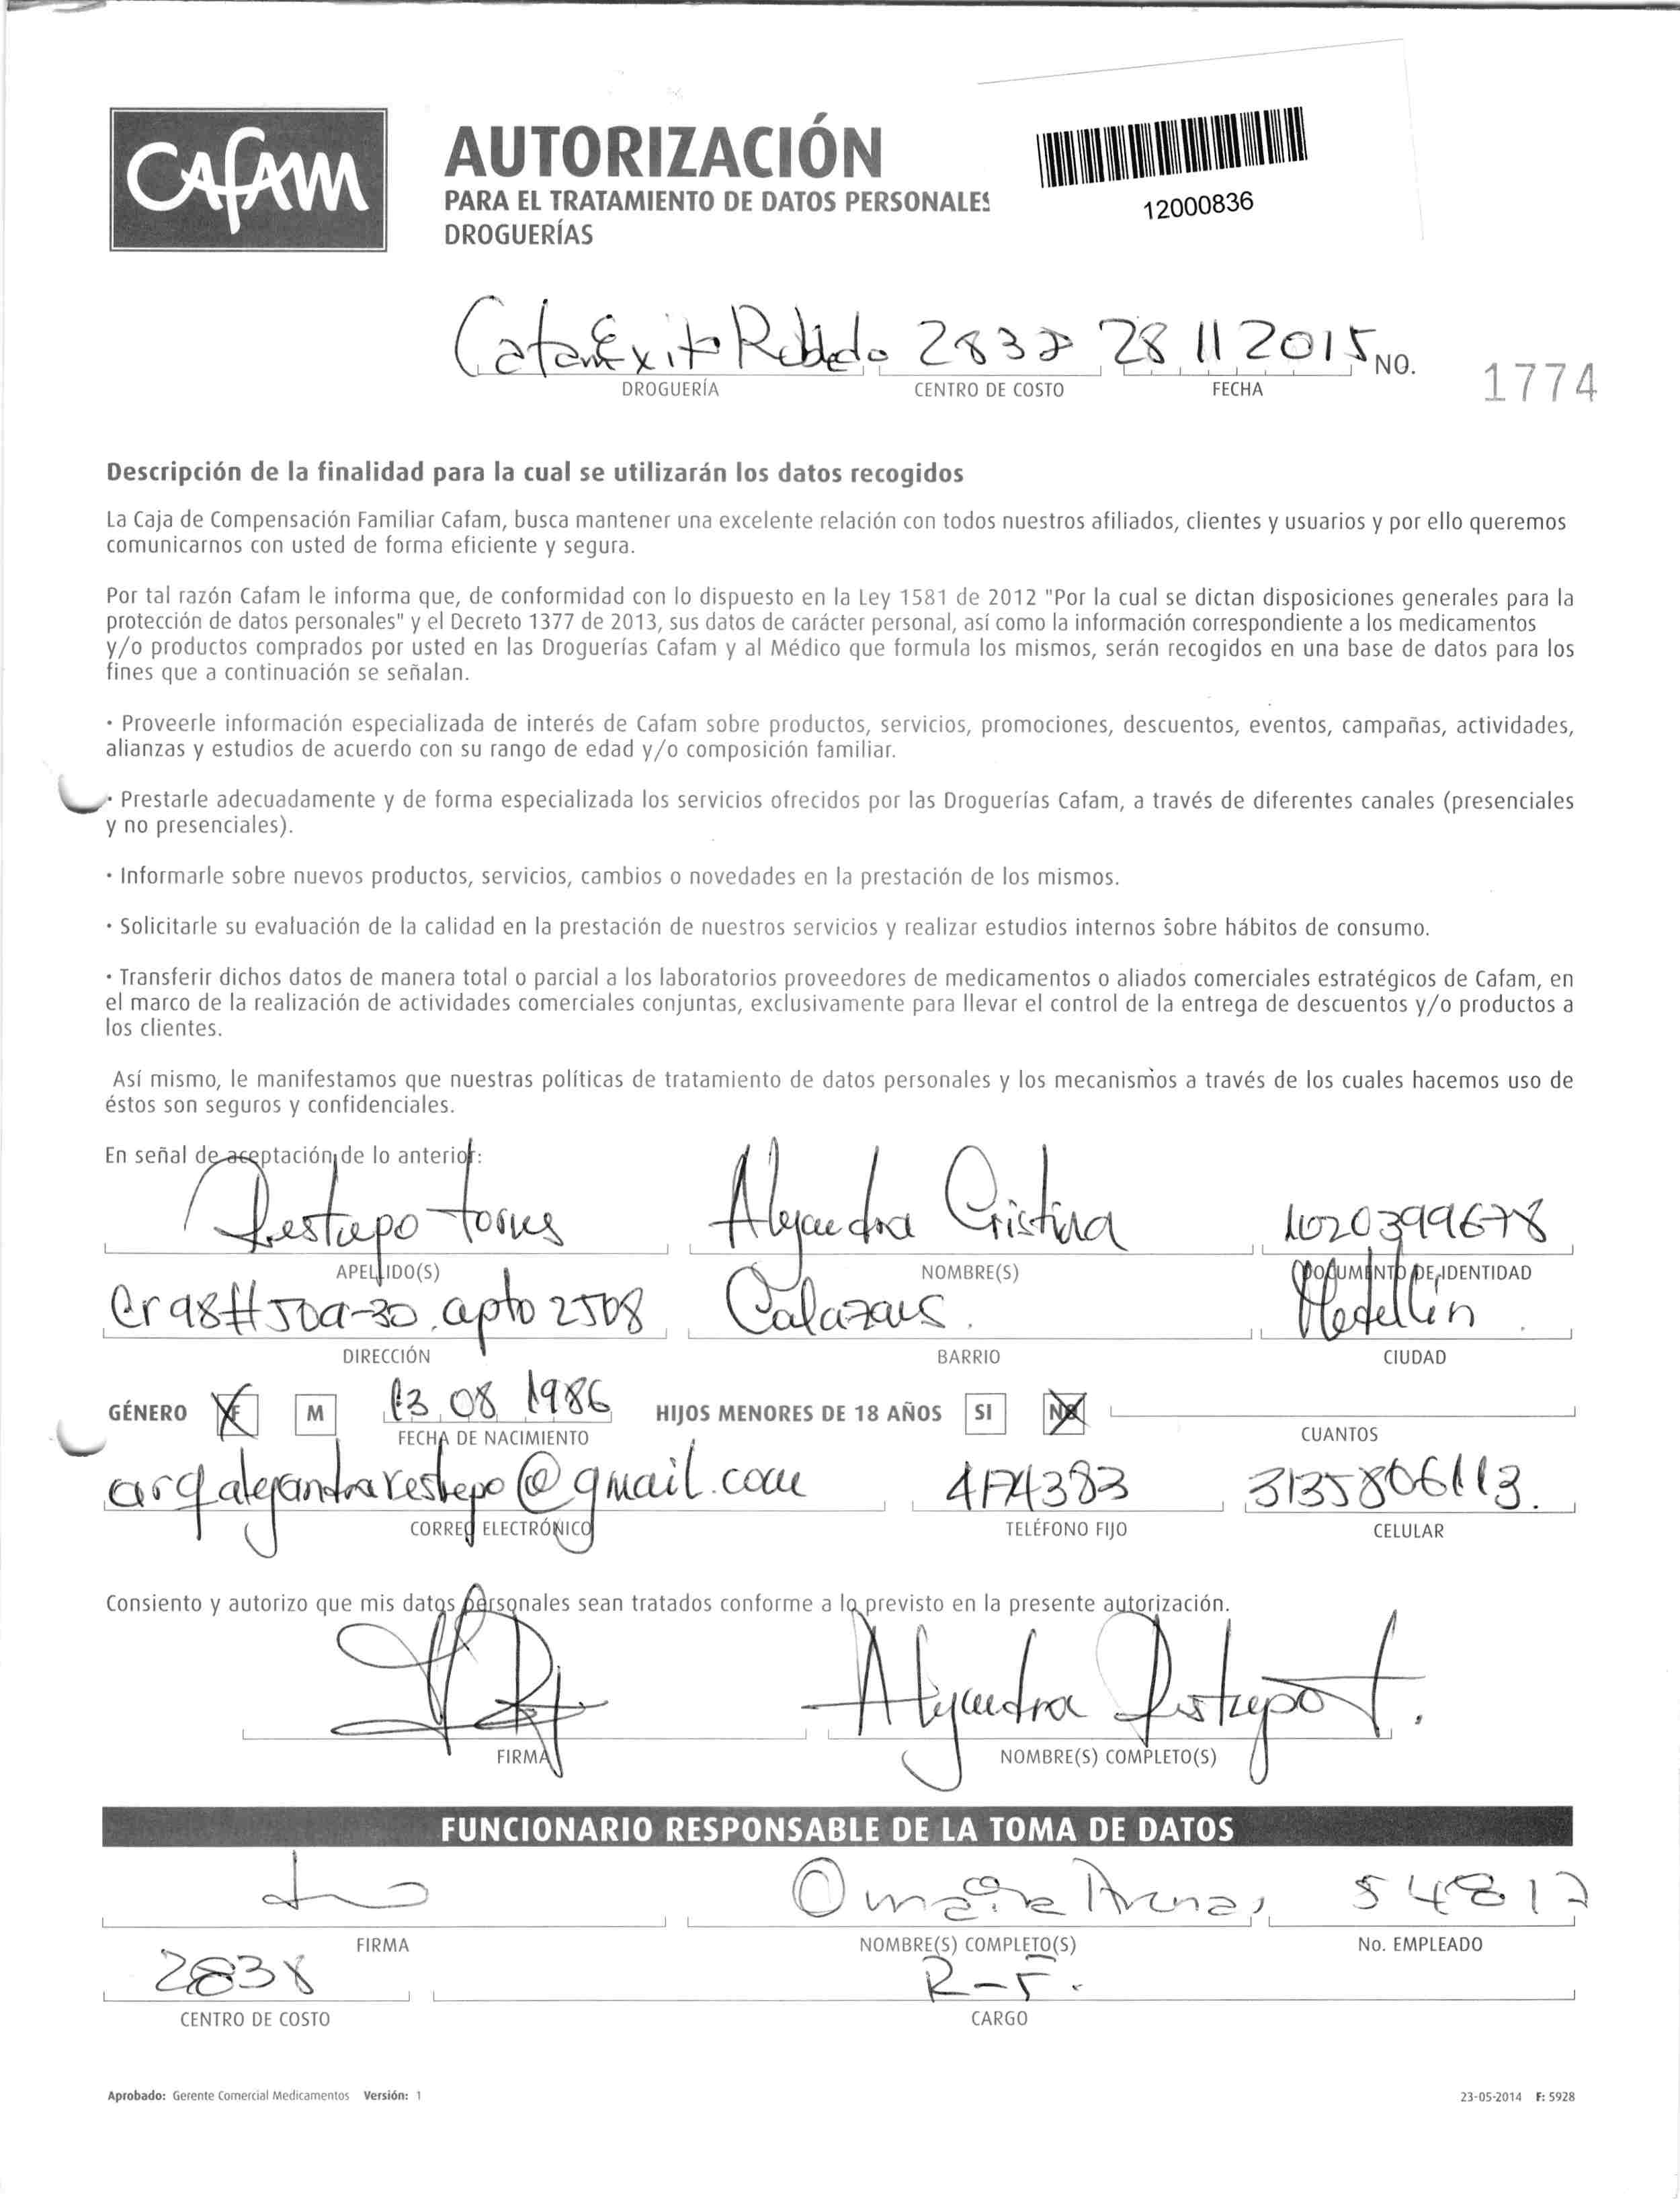 Cafam
AUTORIZACIÓN
PARA EL TRATAMIENTO DE DATOS PERSONALES
DROGUERÍAS
12000836
Cafam Exito Robledo 2838 28 11 2015 NO. 1774
DROGUERÍA CENTRO DE COSTO FECHA
Descripción de la finalidad para la cual se utilizarán los datos recogidos
La Caja de Compensación Familiar Cafam, busca mantener una excelente relación con todos nuestros afiliados, clientes y usuarios y por ello queremos
comunicarnos con usted de forma eficiente y segura.
Por tal razón Cafam le informa que, de conformidad con lo dispuesto en la Ley 1581 de 2012 "Por la cual se dictan disposiciones generales para la
protección de datos personales" y el Decreto 1377 de 2013, sus datos de carácter personal, así como la información correspondiente a los medicamentos
y/o productos comprados por usted en las Droguerías Cafam y al Médico que formula los mismos, serán recogidos en una base de datos para los
fines que a continuación se señalan.
· Proveerle información especializada de interés de Cafam sobre productos, servicios, promociones, descuentos, eventos, campañas, actividades,
alianzas y estudios de acuerdo con su rango de edad y/o composición familiar.
· Prestarle adecuadamente y de forma especializada los servicios ofrecidos por las Droguerías Cafam, a través de diferentes canales (presenciales
y no presenciales).
· Informarle sobre nuevos productos, servicios, cambios o novedades en la prestación de los mismos.
· Solicitarle su evaluación de la calidad en la prestación de nuestros servicios y realizar estudios internos sobre hábitos de consumo.
· Transferir dichos datos de manera total o parcial a los laboratorios proveedores de medicamentos o aliados comerciales estratégicos de Cafam, en
el marco de la realización de actividades comerciales conjuntas, exclusivamente para llevar el control de la entrega de descuentos y/o productos a
los clientes.
Así mismo, le manifestamos que nuestras políticas de tratamiento de datos personales y los mecanismos a través de los cuales hacemos uso de
éstos son seguros y confidenciales.
En señal de aceptación de lo anterior:
Restrepo torres Alejandra Cristina 1020399678
APELLIDO(S) NOMBRE(S) DOCUMENTO DE IDENTIDAD
Cr 98 # 50a-30. apto 2508 Calazans. Medellín.
DIRECCIÓN BARRIO CIUDAD
GÉNERO F M 13 08 1986 HIJOS MENORES DE 18 AÑOS SI NO
FECHA DE NACIMIENTO CUANTOS
arqalejandrarestrepo@gmail.com 4174383 3135806113.
CORREO ELECTRÓNICO TELÉFONO FIJO CELULAR
Consiento y autorizo que mis datos personales sean tratados conforme a lo previsto en la presente autorización.
Alejandra Restrepo T.
FIRMA NOMBRE(S) COMPLETO(S)
FUNCIONARIO RESPONSABLE DE LA TOMA DE DATOS
Omaira Arenas 54817
FIRMA NOMBRE(S) COMPLETO(S) No. EMPLEADO
2838 R-F.
CENTRO DE COSTO CARGO
Aprobado: Gerente Comercial Medicamentos Versión: 1 23-05-2014 F: 5928